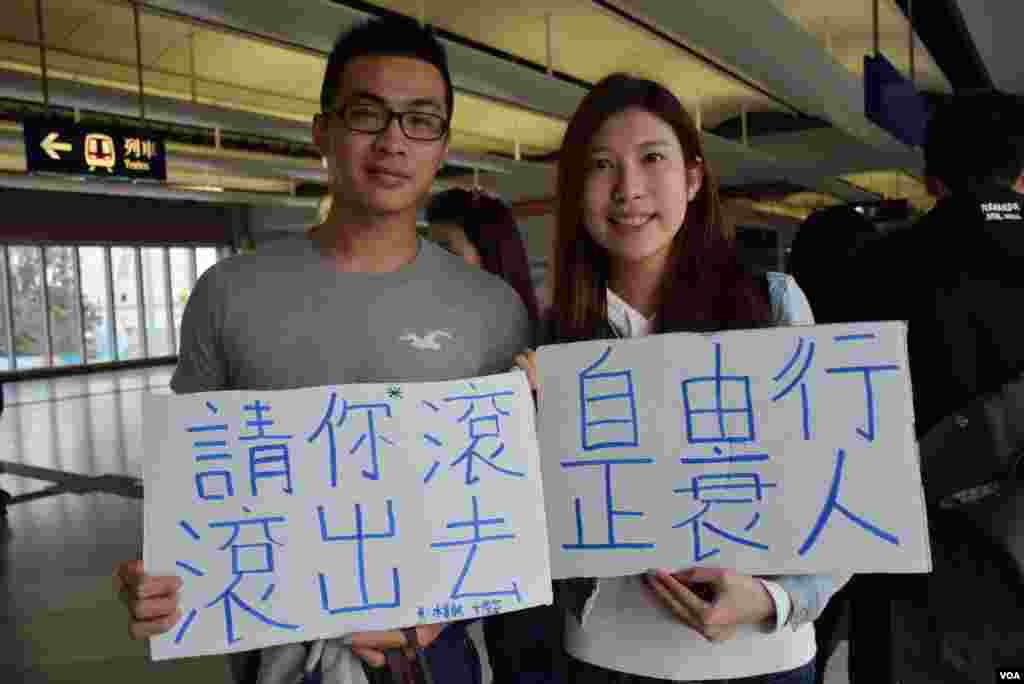 列車
Trains
請你*滾
滾出去
自由行
正衰人
VOA